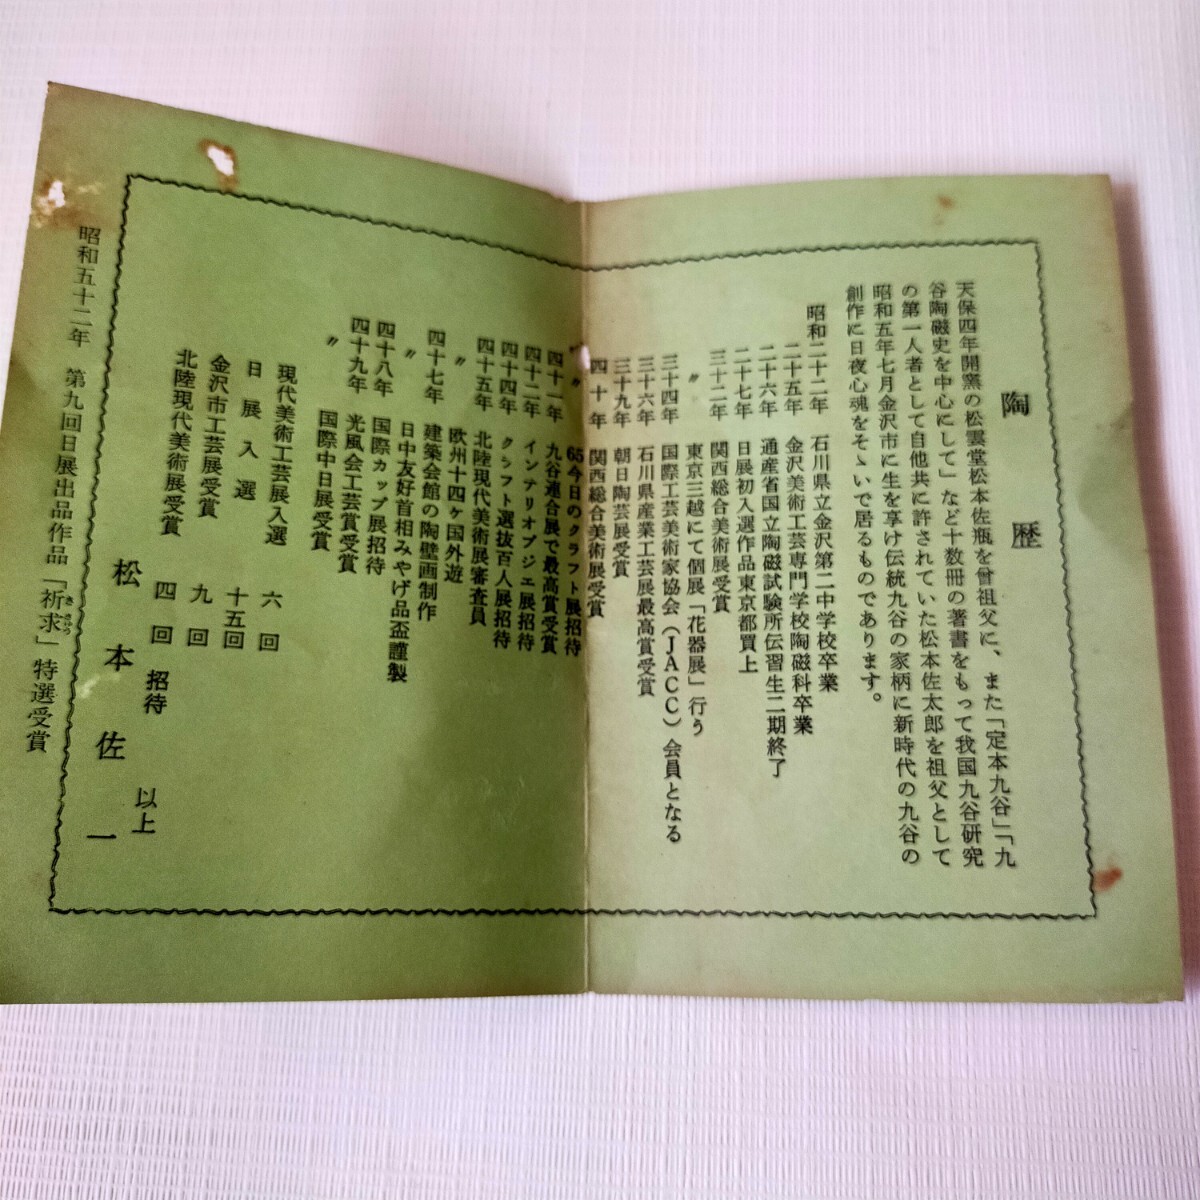 陶歴
天保四年開窯の松雲堂松本佐瓶を曾祖父に、また「定本九谷」「九
谷陶磁史を中心にして」など十数冊の著書をもって我国九谷研究
の第一人者として自他共に許されていた松本佐太郎を祖父として
昭和五年七月金沢市に生を享け伝統九谷の家柄に新時代の九谷の
創作に日夜心魂をそゝいで居るものであります。
昭和二十二年　石川県立金沢第二中学校卒業
二十五年　金沢美術工芸専門学校陶磁科卒業
二十六年　通産省国立陶磁試験所伝習生二期終了
二十七年　日展初入選作品東京都買上
三十二年　関西総合美術展受賞
〃　東京三越にて個展「花器展」行う
三十四年　国際工芸美術家協会（JACC）会員となる
三十六年　石川県産業工芸展最高賞受賞
三十九年　朝日陶芸展受賞
四十年　関西総合美術展受賞
〃　65今日のクラフト展招待
四十一年　九谷連合展で最高賞受賞
四十二年　インテリオブジエ展招待
四十四年　クラフト選抜百人展招待
四十五年　北陸現代美術展審査員
〃　欧州十四ヶ国外遊
四十七年　建築会館の陶壁画制作
〃　日中友好首相みやげ品盃謹製
四十八年　国際カップ展招待
四十九年　光風会工芸賞受賞
〃　国際中日展受賞
現代美術工芸展入選　六回
日展入選　十五回
金沢市工芸展受賞　九回
北陸現代美術展受賞　四回　招待
以上
松本佐一
昭和五十二年　第九回日展出品作品「祈求」特選受賞